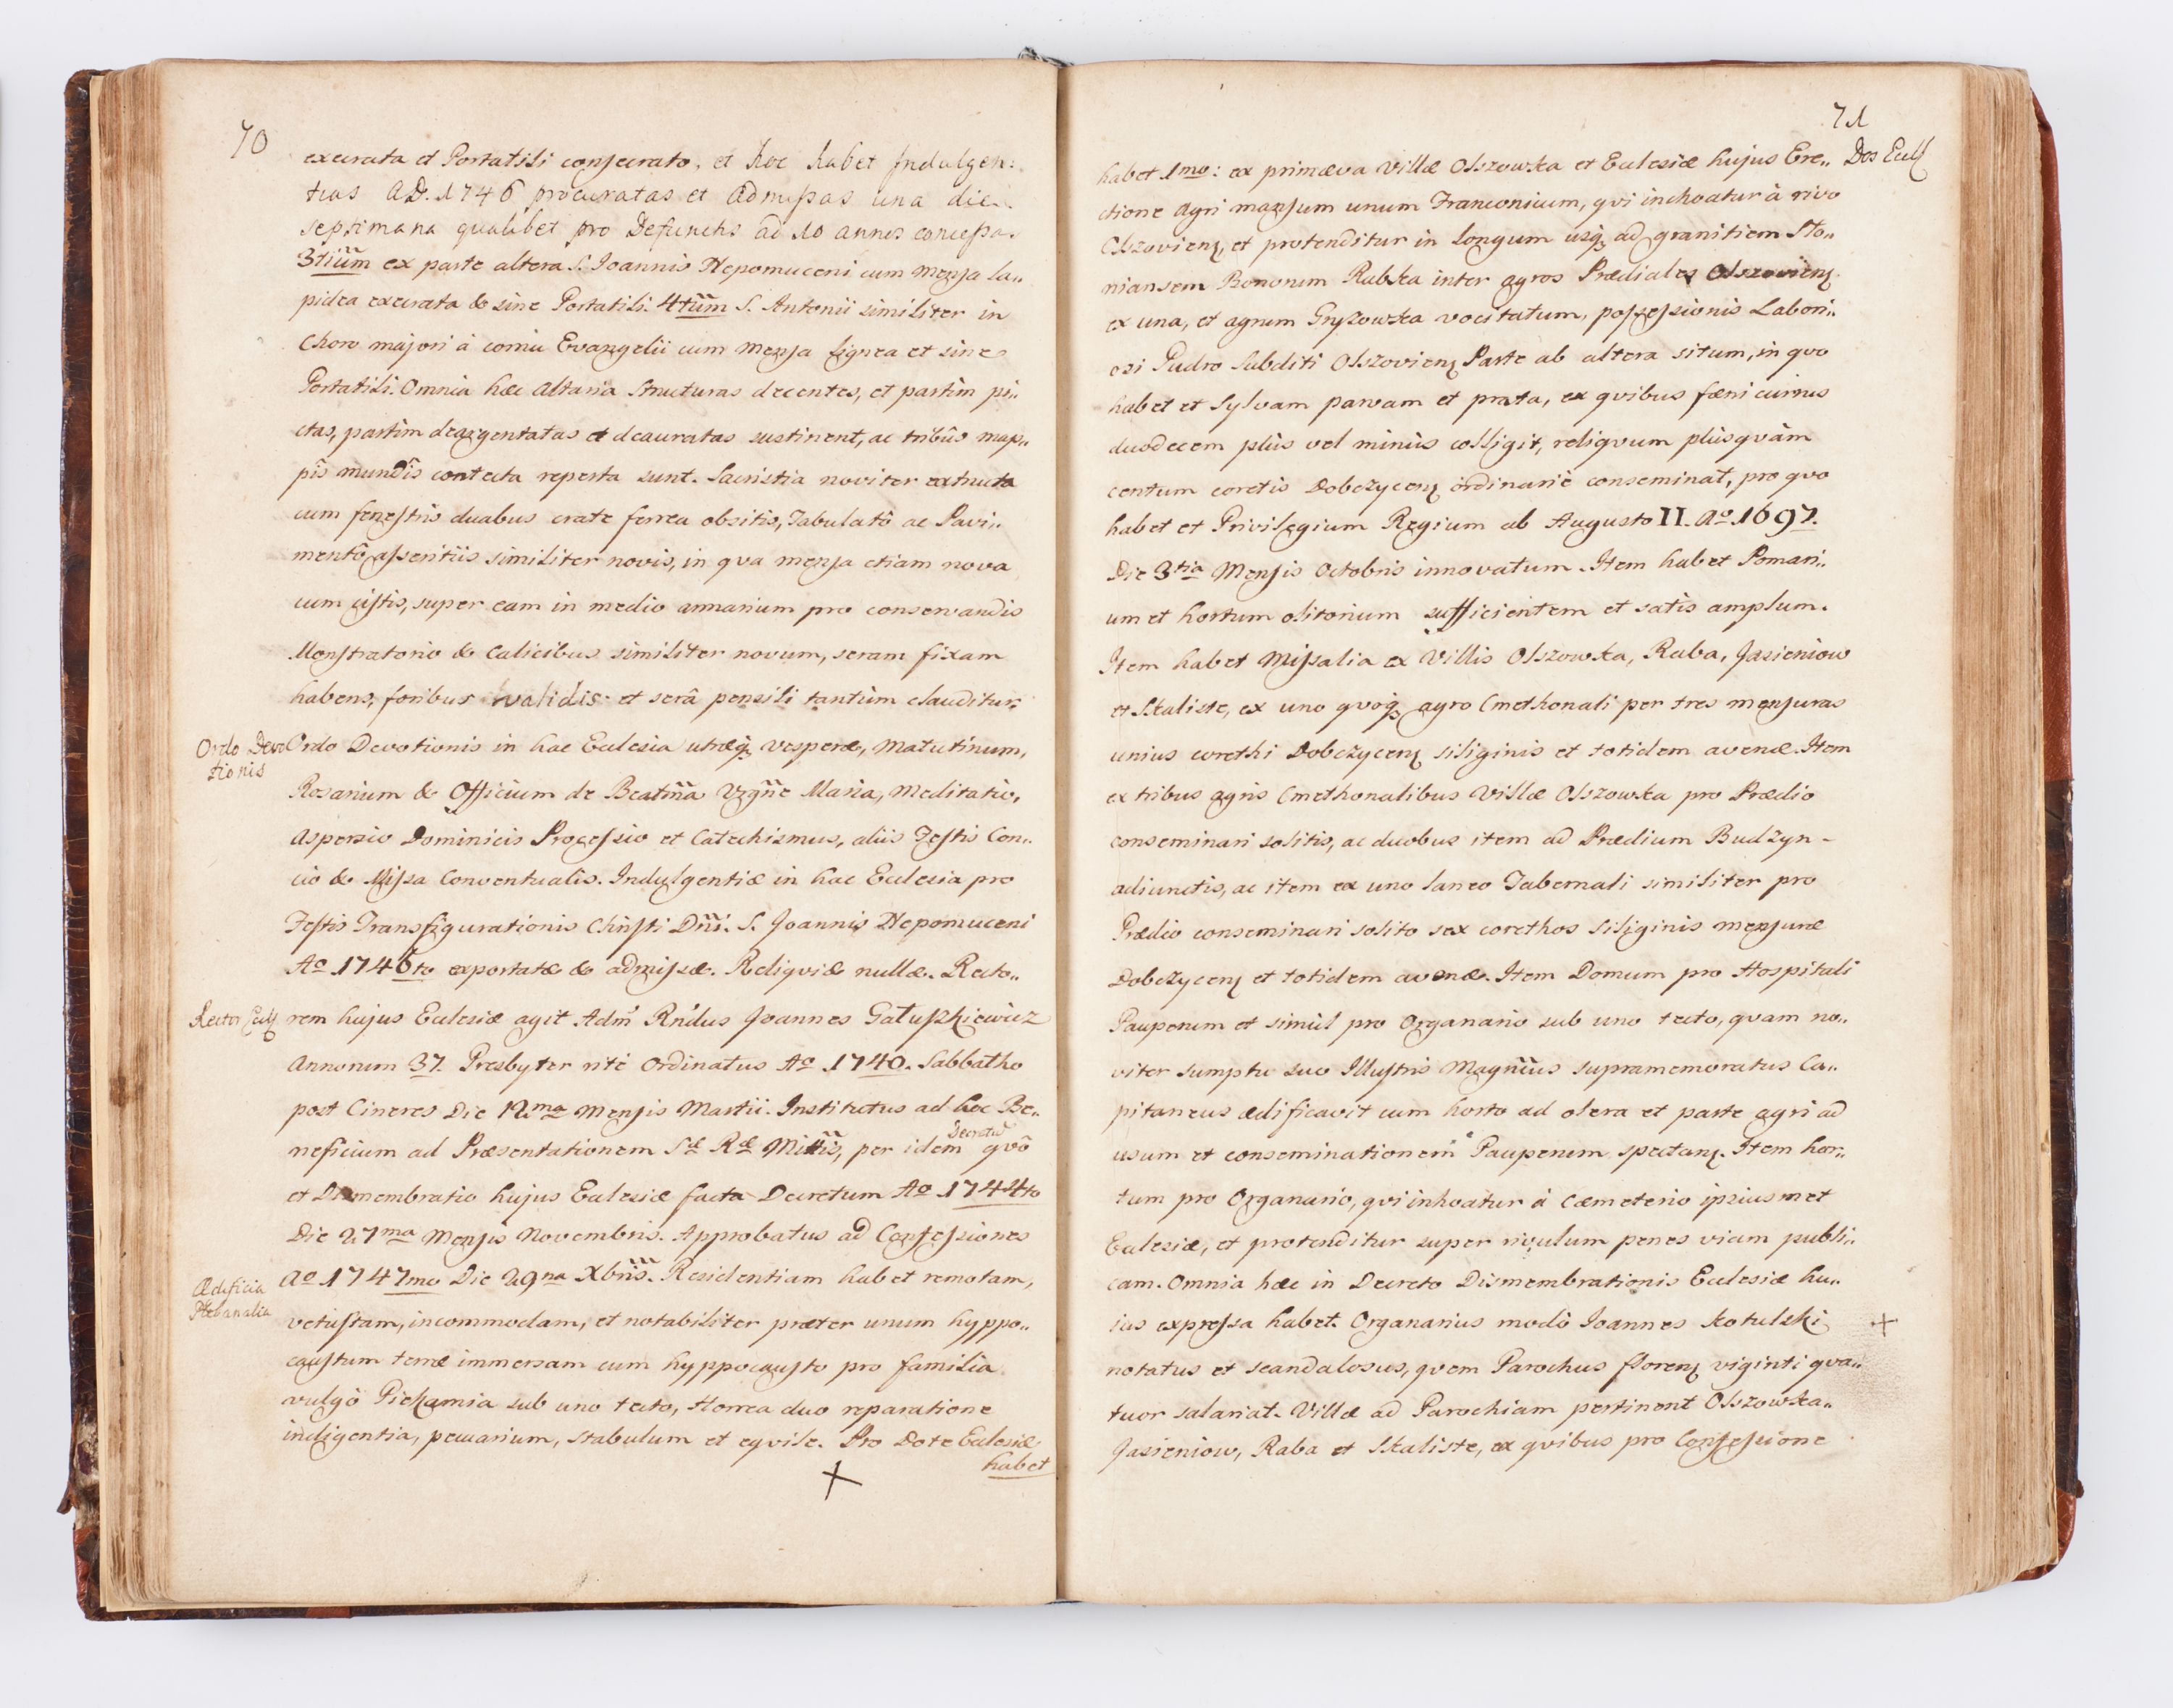 70
execrata et Portatili consecrato, et hoc habet Indulgen:
tias A.D. 1746 procuratas et admissas una die
septimana qualibet pro Defunctis ad 10 annos concessas
3tium ex parte altera S. Joannis Nepomuceni cum mensa la,,
pidea execrata & sine Portatili. 4tum S. Antonii similiter in
Choro majori à cornu Evangelii cum mensa lignea et sine
Portatili. Omnia hæc altaria structuras decentes, et partim pi,,
ctas, partim deargentatas et deauratas sustinent, ac tribûs map,,
pîs mundîs contecta reperta sunt. Sacristia noviter extructa
cum fenestris duabus crate ferrea obsitis, Tabulatô ac Pavi,,
mentô asseritiis similiter novis, in qva mensa etiam nova
cum cistis, super eam in medio armarium pro conservandis
Monstratorio & Calicibus similiter novum, seram fixam
habens, foribus validis et serâ pensili tantùm clauditur.
Ordo Devo
tionis
Ordo Devotionis in hac Ecclesia utræq; vesperæ, Matutinum,
Rosarium & Officium de Beatma Vrgñe Maria, Meditatio,
aspersio Dominicis Processio et Catechismus, aliis Festis Con,,
cio & Missa Conventualis. Indulgentiæ in hac Ecclesia pro
Festis Transfigurationis Christi Dñi. S. Joannis Nepomuceni
Ao 1746to exportatæ & admissæ. Reliqviæ nullæ. Recto,,
Rector Eccl
rem hujus Ecclesiæ agit Adm Rndus Joannes Gatuszkiewicz
Annorum 37. Presbyter ritè Ordinatus Ao 1740. Sabbatho
post Cineres Die 12ma Mensis Martii. Institutus ad hoc Be,,
neficium ad Præsentationem Sæ Ræ Mttis, per idem decretu qvô
et Dismembratio hujus Ecclesiæ facta Decretum Ao 1744to
Die 27ma Mensis Novembris. Approbatus ad Confessiones
Ao 1747mo Die 29na Xbris. Residentiam habet remotam,
Ædificia
Plebanalia
vetustam, incommodam, et notabiliter præter unum hyppo,,
caustum terræ immersam cum hyppocausto pro familia
vulgò Piekarnia sub uno tecto, Horrea duo reparatione
indigentia, pecuarium, stabulum et eqvile. Pro Dote Ecclesiæ
habet
71
Dos Eccl
habet 1mo: ex primæva Villæ Olszowka et Ecclesiæ hujus Ere,,
ctione agri mansum unum Franconicum, qvi inchoatur à rivo
Olszovien, et protenditur in longum usq; ad granitiem Sto,,
niansem Bonorum Rabska inter agros Prædiales Olszovien
ex una, et agrum Gryzowska vocitatum, possessionis Labori,,
osi Pudro subditi Olszovien Parte ab altera situm, in qvo
habet et sylvam parvam et prata, ex qvibus fæni currus
duodecem plùs vel minùs colligit, reliqvum plùsqvàm
centum coretis Dobczycen ordinariè conseminat, pro qvo
habet et Privilegium Regium ab Augusto II. Ao. 1697.
Die 3tia Mensis Octobris innovatum. Item habet Pomari,,
um et hortum olitorium sufficientem et satis amplum.
Item habet Missalia ex Villis Olszowka, Raba, Jasieniow
et Skaliste, ex uno qvoq; agro Cmethonali per tres mensuras
unius corethi Dobczycen siliginis et totidem avenæ. Item
ex tribus agris Cmethonalibus Villæ Olszowka pro Prædio
conseminari solitis, ac duobus item ad Prædium Budzyn -
adiunctis, ac item ex uno laneo Tabernali similiter pro
Prædio conseminari solito sex corethos Siliginis mensuræ
Dobczycen et totidem avenæ. Item Domum pro Hospitali
Pauperum et simùl pro Organario sub uno tecto, qvam no,,
viter sumptu suo Illustris Magnius supramemoratus Ca,,
pitaneus ædificavit cum horto ad olera et parte agri ad
usum et conseminationem Pauperum spectan. Item hor,,
tum pro Organario, qvi inhoatur à Cæmeterio ipsiusmet
Ecclesiæ, et protenditur super rivulum penes viam publi,,
cam. Omnia hæc in Decreto Dismembrationis Ecclesiæ hu,,
ius expressa habet. Organarius modò Joannes Kotulski
notatus et scandalosus, qvem Parochus floren viginti qva,,
tuor salariat. Villæ ad Parochiam pertinent Olszowka,,
Jasieniow, Raba et Skaliste, ex qvibus pro Confessione